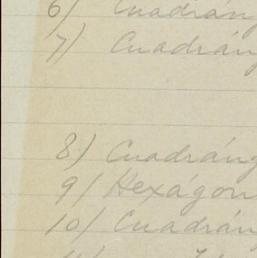 6) Cuadráng
7) Cuadrán
8) Cuadráng
9) Hexágon
10) Cuadrán